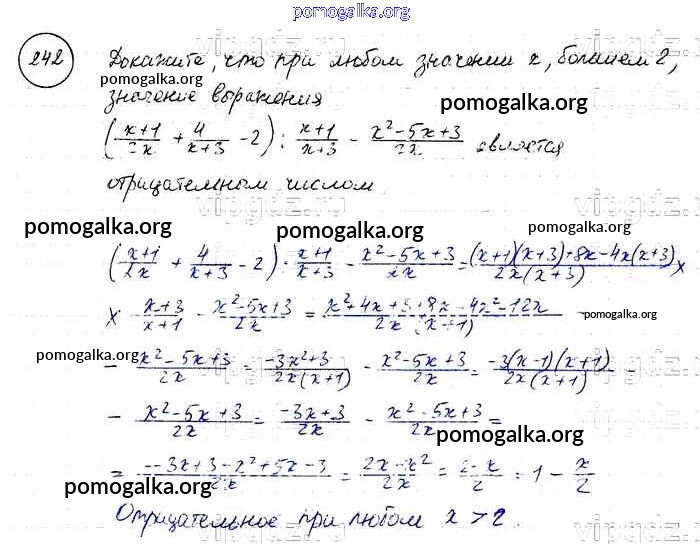 pomogalka.org
242 Докажите, что при любом значении x, большем 2,
pomogalka.org
значение выражения
pomogalka.org
((x+1)/2x + 4/(x+3) - 2) : (x+1)/(x+3) - (x²-5x+3)/2x является
отрицательным числом
pomogalka.org pomogalka.org pomogalka.org
((x+1)/2x + 4/(x+3) - 2) : (x+1)/(x+3) - (x²-5x+3)/2x = ((x+1)(x+3)+8x-4x(x+3))/(2x(x+3)) ×
× (x+3)/(x+1) - (x²-5x+3)/2x = (x²+4x+3+8x-4x²-12x)/(2x(x+1)) -
pomogalka.org
pomogalka.org
- (x²-5x+3)/2x = (-3x²+3)/(2x(x+1)) - (x²-5x+3)/2x = (-3(x-1)(x+1))/(2x(x+1)) -
- (x²-5x+3)/2x = (-3x+3)/2x - (x²-5x+3)/2x =
pomogalka.org
= (-3x+3-x²+5x-3)/2x = (2x-x²)/2x = (2-x)/2 = 1 - x/2
pomogalka.org pomogalka.org
Отрицательное при любом x > 2.